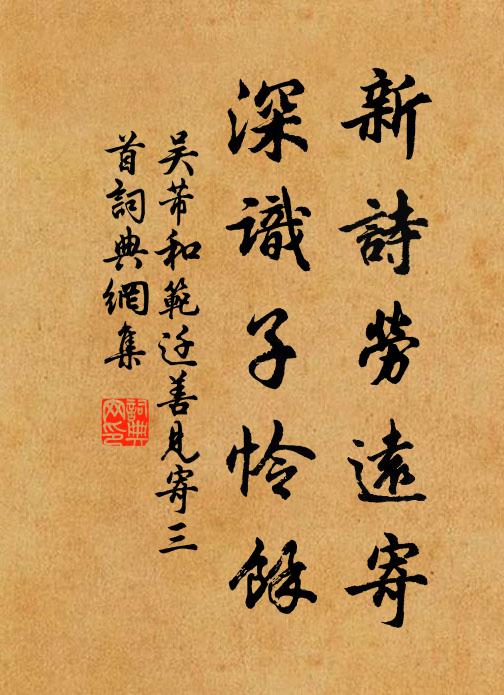 新詩勞遠寄
深識子怜餘
吴芾和範迁善見寄三
首詞典網集
詞典網印